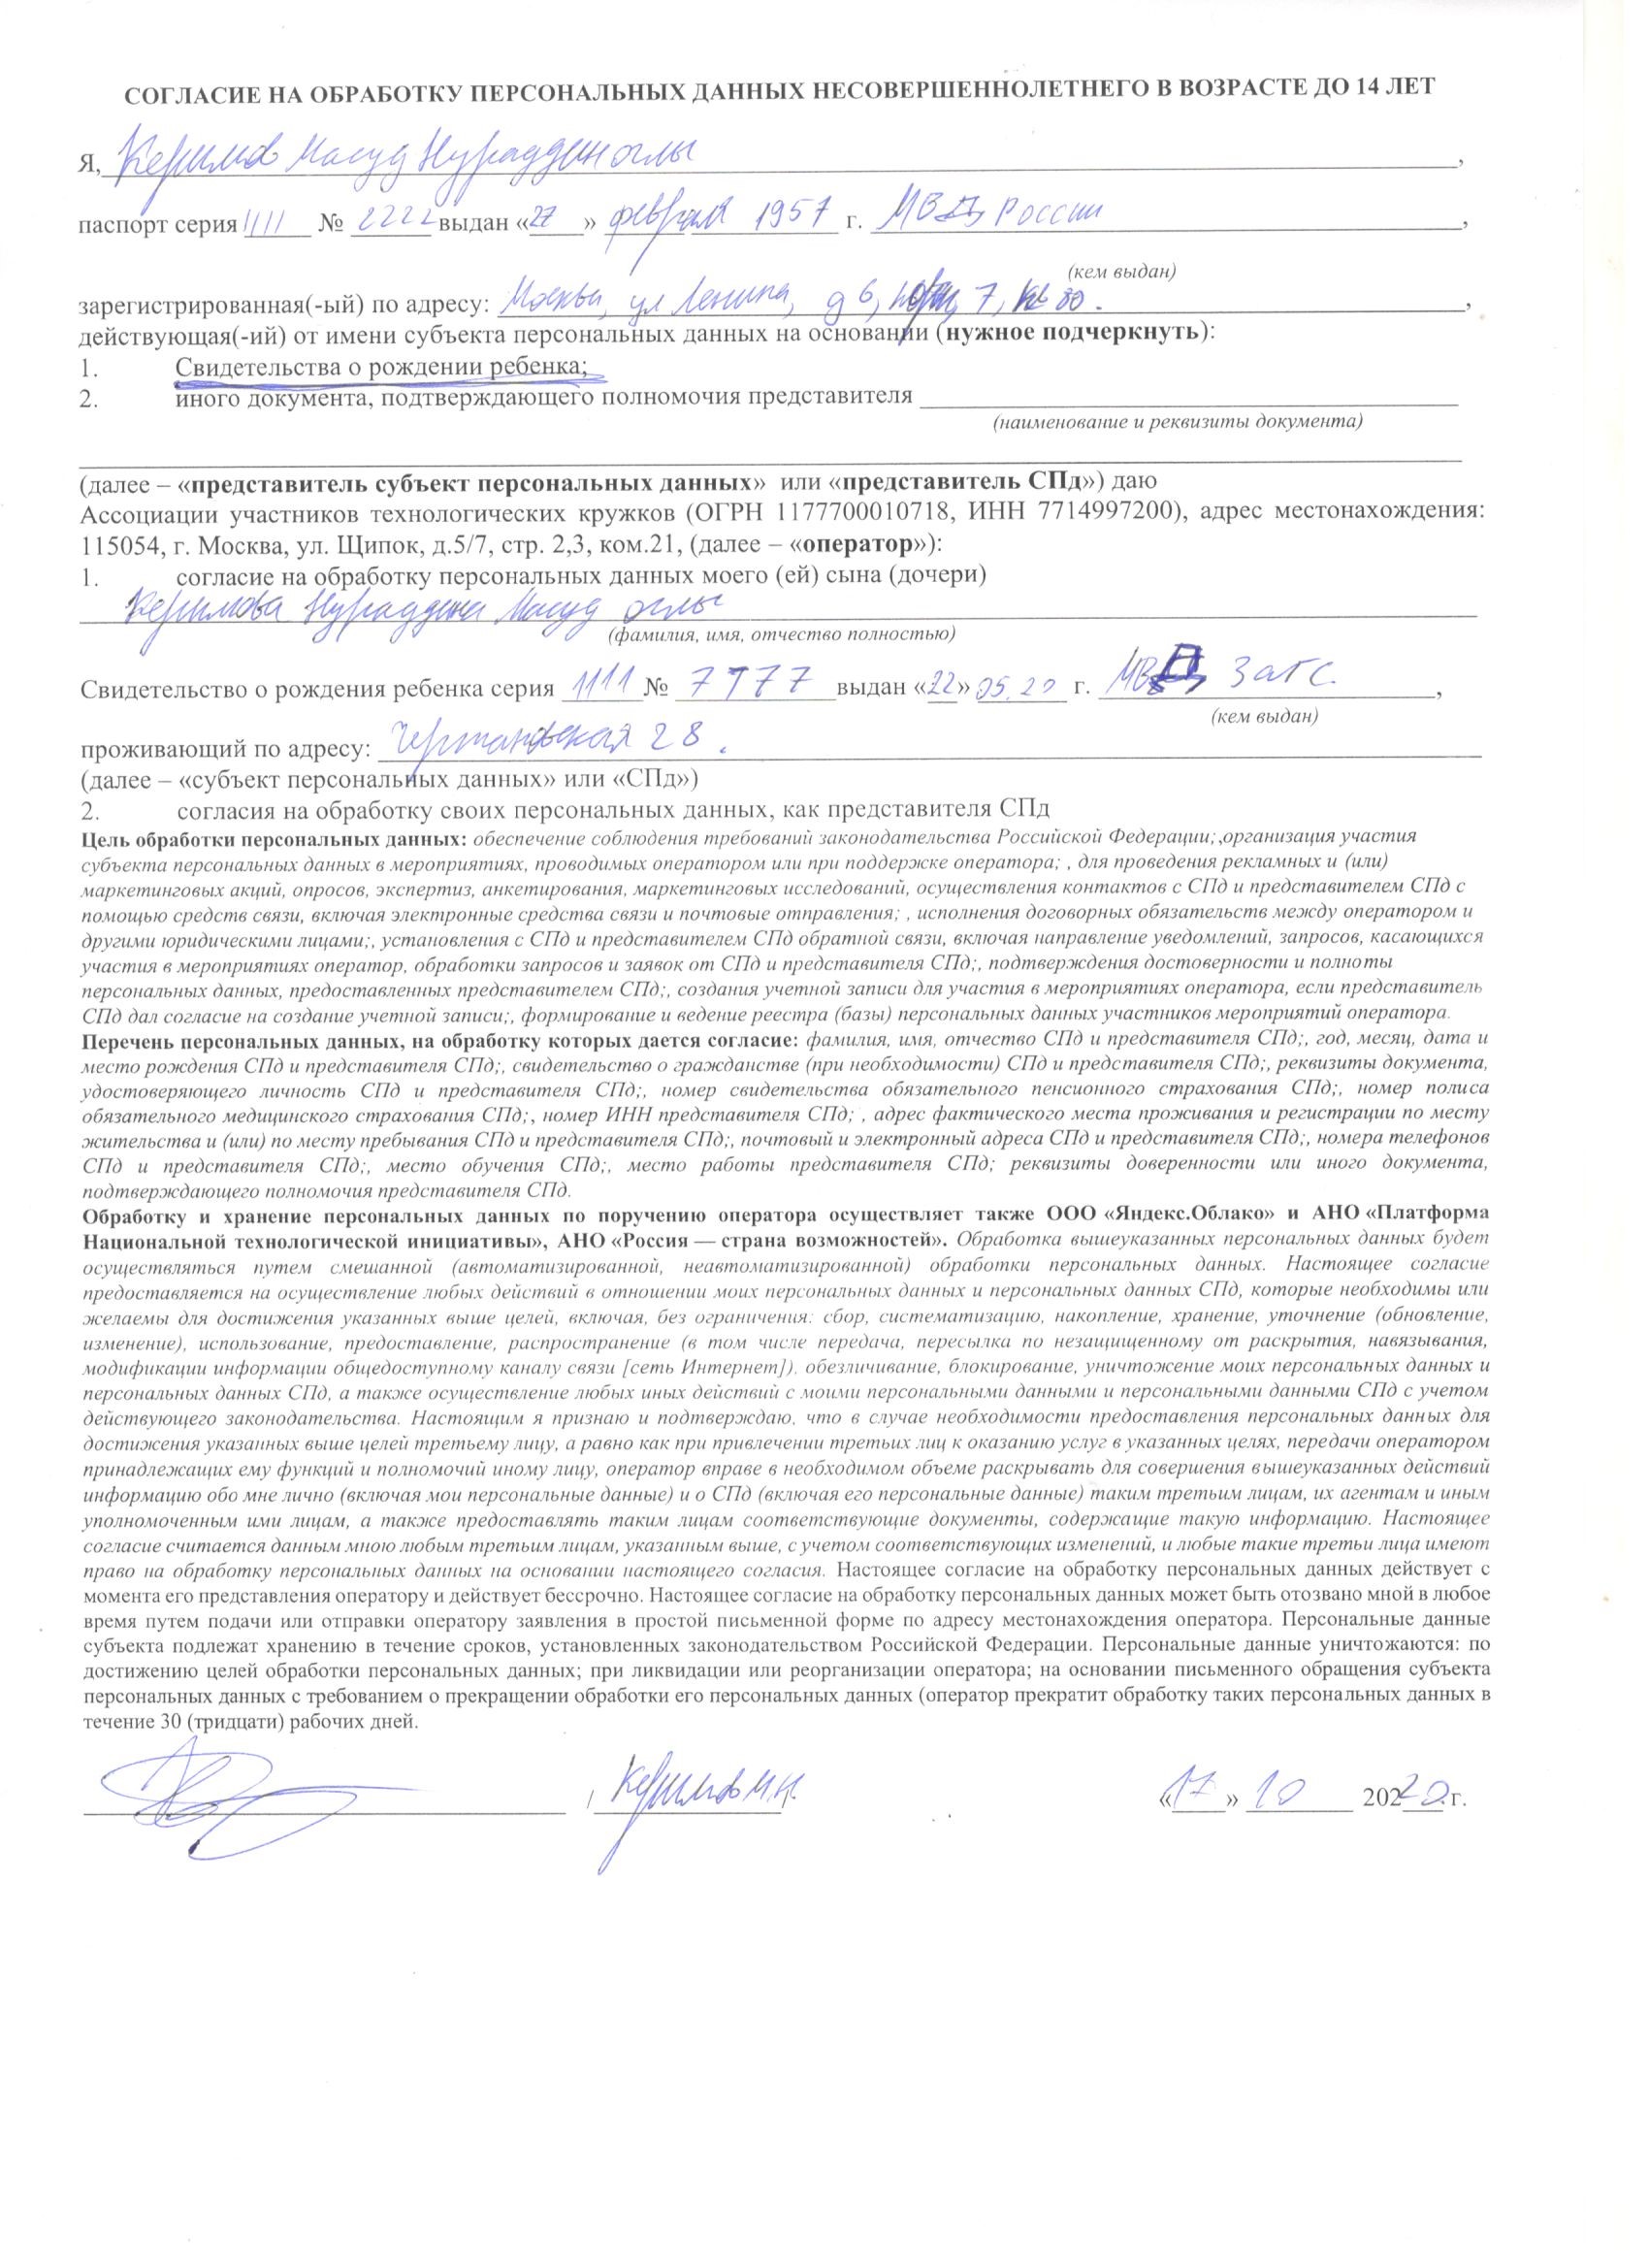 СОГЛАСИЕ НА ОБРАБОТКУ ПЕРСОНАЛЬНЫХ ДАННЫХ НЕСОВЕРШЕННОЛЕТНЕГО В ВОЗРАСТЕ ДО 14 ЛЕТ
Я, Керимов Масуд Нураддин оглы,
паспорт серия 1111 № 2222 выдан «27» февраля 1957 г. МВД России,
(кем выдан)
зарегистрированная(-ый) по адресу: Москва, ул Ленина, д 6, 7, кв 80.,
действующая(-ий) от имени субъекта персональных данных на основании (нужное подчеркнуть):
1. Свидетельства о рождении ребенка;
2. иного документа, подтверждающего полномочия представителя
(наименование и реквизиты документа)
(далее – «представитель субъект персональных данных» или «представитель СПд») даю
Ассоциации участников технологических кружков (ОГРН 1177700010718, ИНН 7714997200), адрес местонахождения:
115054, г. Москва, ул. Щипок, д.5/7, стр. 2,3, ком.21, (далее – «оператор»):
1. согласие на обработку персональных данных моего (ей) сына (дочери)
Керимова Нураддина Масуд оглы
(фамилия, имя, отчество полностью)
Свидетельство о рождения ребенка серия 1111 № 7777 выдан «22» 05.20 г. МВД, Загс.,
(кем выдан)
проживающий по адресу: Чертановская 28.
(далее – «субъект персональных данных» или «СПд»)
2. согласия на обработку своих персональных данных, как представителя СПд
Цель обработки персональных данных: обеспечение соблюдения требований законодательства Российской Федерации;,организация участия
субъекта персональных данных в мероприятиях, проводимых оператором или при поддержке оператора; , для проведения рекламных и (или)
маркетинговых акций, опросов, экспертиз, анкетирования, маркетинговых исследований, осуществления контактов с СПд и представителем СПд с
помощью средств связи, включая электронные средства связи и почтовые отправления; , исполнения договорных обязательств между оператором и
другими юридическими лицами;, установления с СПд и представителем СПд обратной связи, включая направление уведомлений, запросов, касающихся
участия в мероприятиях оператор, обработки запросов и заявок от СПд и представителя СПд;, подтверждения достоверности и полноты
персональных данных, предоставленных представителем СПд;, создания учетной записи для участия в мероприятиях оператора, если представитель
СПд дал согласие на создание учетной записи;, формирование и ведение реестра (базы) персональных данных участников мероприятий оператора.
Перечень персональных данных, на обработку которых дается согласие: фамилия, имя, отчество СПд и представителя СПд;, год, месяц, дата и
место рождения СПд и представителя СПд;, свидетельство о гражданстве (при необходимости) СПд и представителя СПд;, реквизиты документа,
удостоверяющего личность СПд и представителя СПд;, номер свидетельства обязательного пенсионного страхования СПд;, номер полиса
обязательного медицинского страхования СПд;, номер ИНН представителя СПд; , адрес фактического места проживания и регистрации по месту
жительства и (или) по месту пребывания СПд и представителя СПд;, почтовый и электронный адреса СПд и представителя СПд;, номера телефонов
СПд и представителя СПд;, место обучения СПд;, место работы представителя СПд; реквизиты доверенности или иного документа,
подтверждающего полномочия представителя СПд.
Обработку и хранение персональных данных по поручению оператора осуществляет также ООО «Яндекс.Облако» и АНО «Платформа
Национальной технологической инициативы», АНО «Россия — страна возможностей». Обработка вышеуказанных персональных данных будет
осуществляться путем смешанной (автоматизированной, неавтоматизированной) обработки персональных данных. Настоящее согласие
предоставляется на осуществление любых действий в отношении моих персональных данных и персональных данных СПд, которые необходимы или
желаемы для достижения указанных выше целей, включая, без ограничения: сбор, систематизацию, накопление, хранение, уточнение (обновление,
изменение), использование, предоставление, распространение (в том числе передача, пересылка по незащищенному от раскрытия, навязывания,
модификации информации общедоступному каналу связи [сеть Интернет]), обезличивание, блокирование, уничтожение моих персональных данных и
персональных данных СПд, а также осуществление любых иных действий с моими персональными данными и персональными данными СПд с учетом
действующего законодательства. Настоящим я признаю и подтверждаю, что в случае необходимости предоставления персональных данных для
достижения указанных выше целей третьему лицу, а равно как при привлечении третьих лиц к оказанию услуг в указанных целях, передачи оператором
принадлежащих ему функций и полномочий иному лицу, оператор вправе в необходимом объеме раскрывать для совершения вышеуказанных действий
информацию обо мне лично (включая мои персональные данные) и о СПд (включая его персональные данные) таким третьим лицам, их агентам и иным
уполномоченным ими лицам, а также предоставлять таким лицам соответствующие документы, содержащие такую информацию. Настоящее
согласие считается данным мною любым третьим лицам, указанным выше, с учетом соответствующих изменений, и любые такие третьи лица имеют
право на обработку персональных данных на основании настоящего согласия. Настоящее согласие на обработку персональных данных действует с
момента его представления оператору и действует бессрочно. Настоящее согласие на обработку персональных данных может быть отозвано мной в любое
время путем подачи или отправки оператору заявления в простой письменной форме по адресу местонахождения оператора. Персональные данные
субъекта подлежат хранению в течение сроков, установленных законодательством Российской Федерации. Персональные данные уничтожаются: по
достижению целей обработки персональных данных; при ликвидации или реорганизации оператора; на основании письменного обращения субъекта
персональных данных с требованием о прекращении обработки его персональных данных (оператор прекратит обработку таких персональных данных в
течение 30 (тридцати) рабочих дней.
/ Керимов М.Н. «17» 10 20220 г.